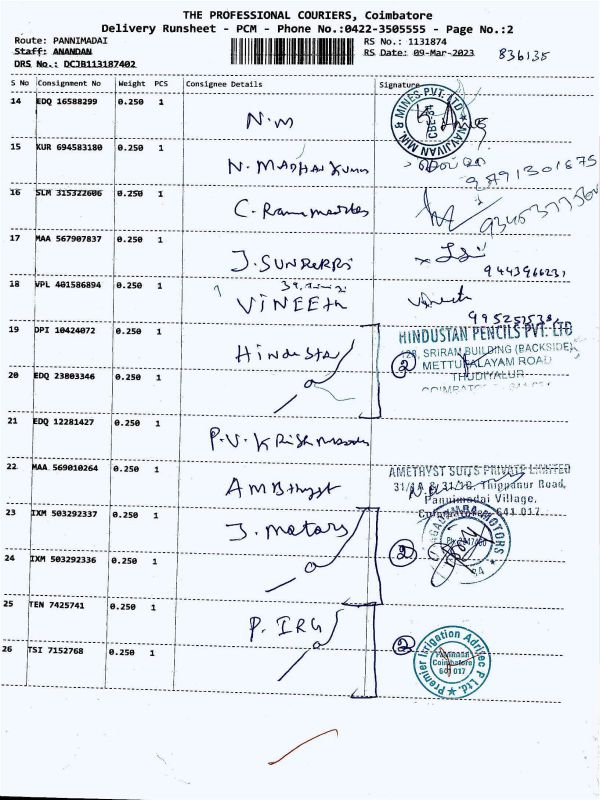 THE PROFESSIONAL COURIERS, Coimbatore
Delivery Runsheet - PCM - Phone No.:0422-3505555 - Page No.:2
Route: PANNIMADAI
Staff: ANANDAN
DRS No.: DCJB113187402
RS No.: 1131874
RS Date: 09-Mar-2023
836135
S No Consignment No Weight PCS Consignee Details Signature
14 EDQ 16588299 0.250 1 N.M
MIN. & MINES PVT. LTD
CBE-34
15 KUR 694583180 0.250 1 N. MADHAN KUMAR
9791301675
16 SLM 315322606 0.250 1 C.
17 MAA 567907837 0.250 1 J. SUNDERRI
18 VPL 401586894 0.250 1 VINEETH
Vineeth
19 DPI 10424072 0.250 1 Hindustan
HINDUSTAN PENCILS PVT. LTD
SRIRAM BUILDING (BACKSIDE)
METTUPALAYAM ROAD
THUDIYALUR
2
20 EDQ 23803346 0.250 1
21 EDQ 12281427 0.250 1 P.V.
22 MAA 569010264 0.250 1 AMEthyst
AMETHYST SUITS PRIVATE LIMITED
31/1A & 31/1B, Thippanur Road,
Pannimadai Village,
Coimbatore 641 017.
23 IXM 503292337 0.250 1 J. Motors
MOTORS
2
24 IXM 503292336 0.250 1
25 TEN 7425741 0.250 1 P. IRG
2
Premier Irrigation Adritec P Ltd.
Pannimadai
Coimbatore
641 017
26 TSI 7152768 0.250 1